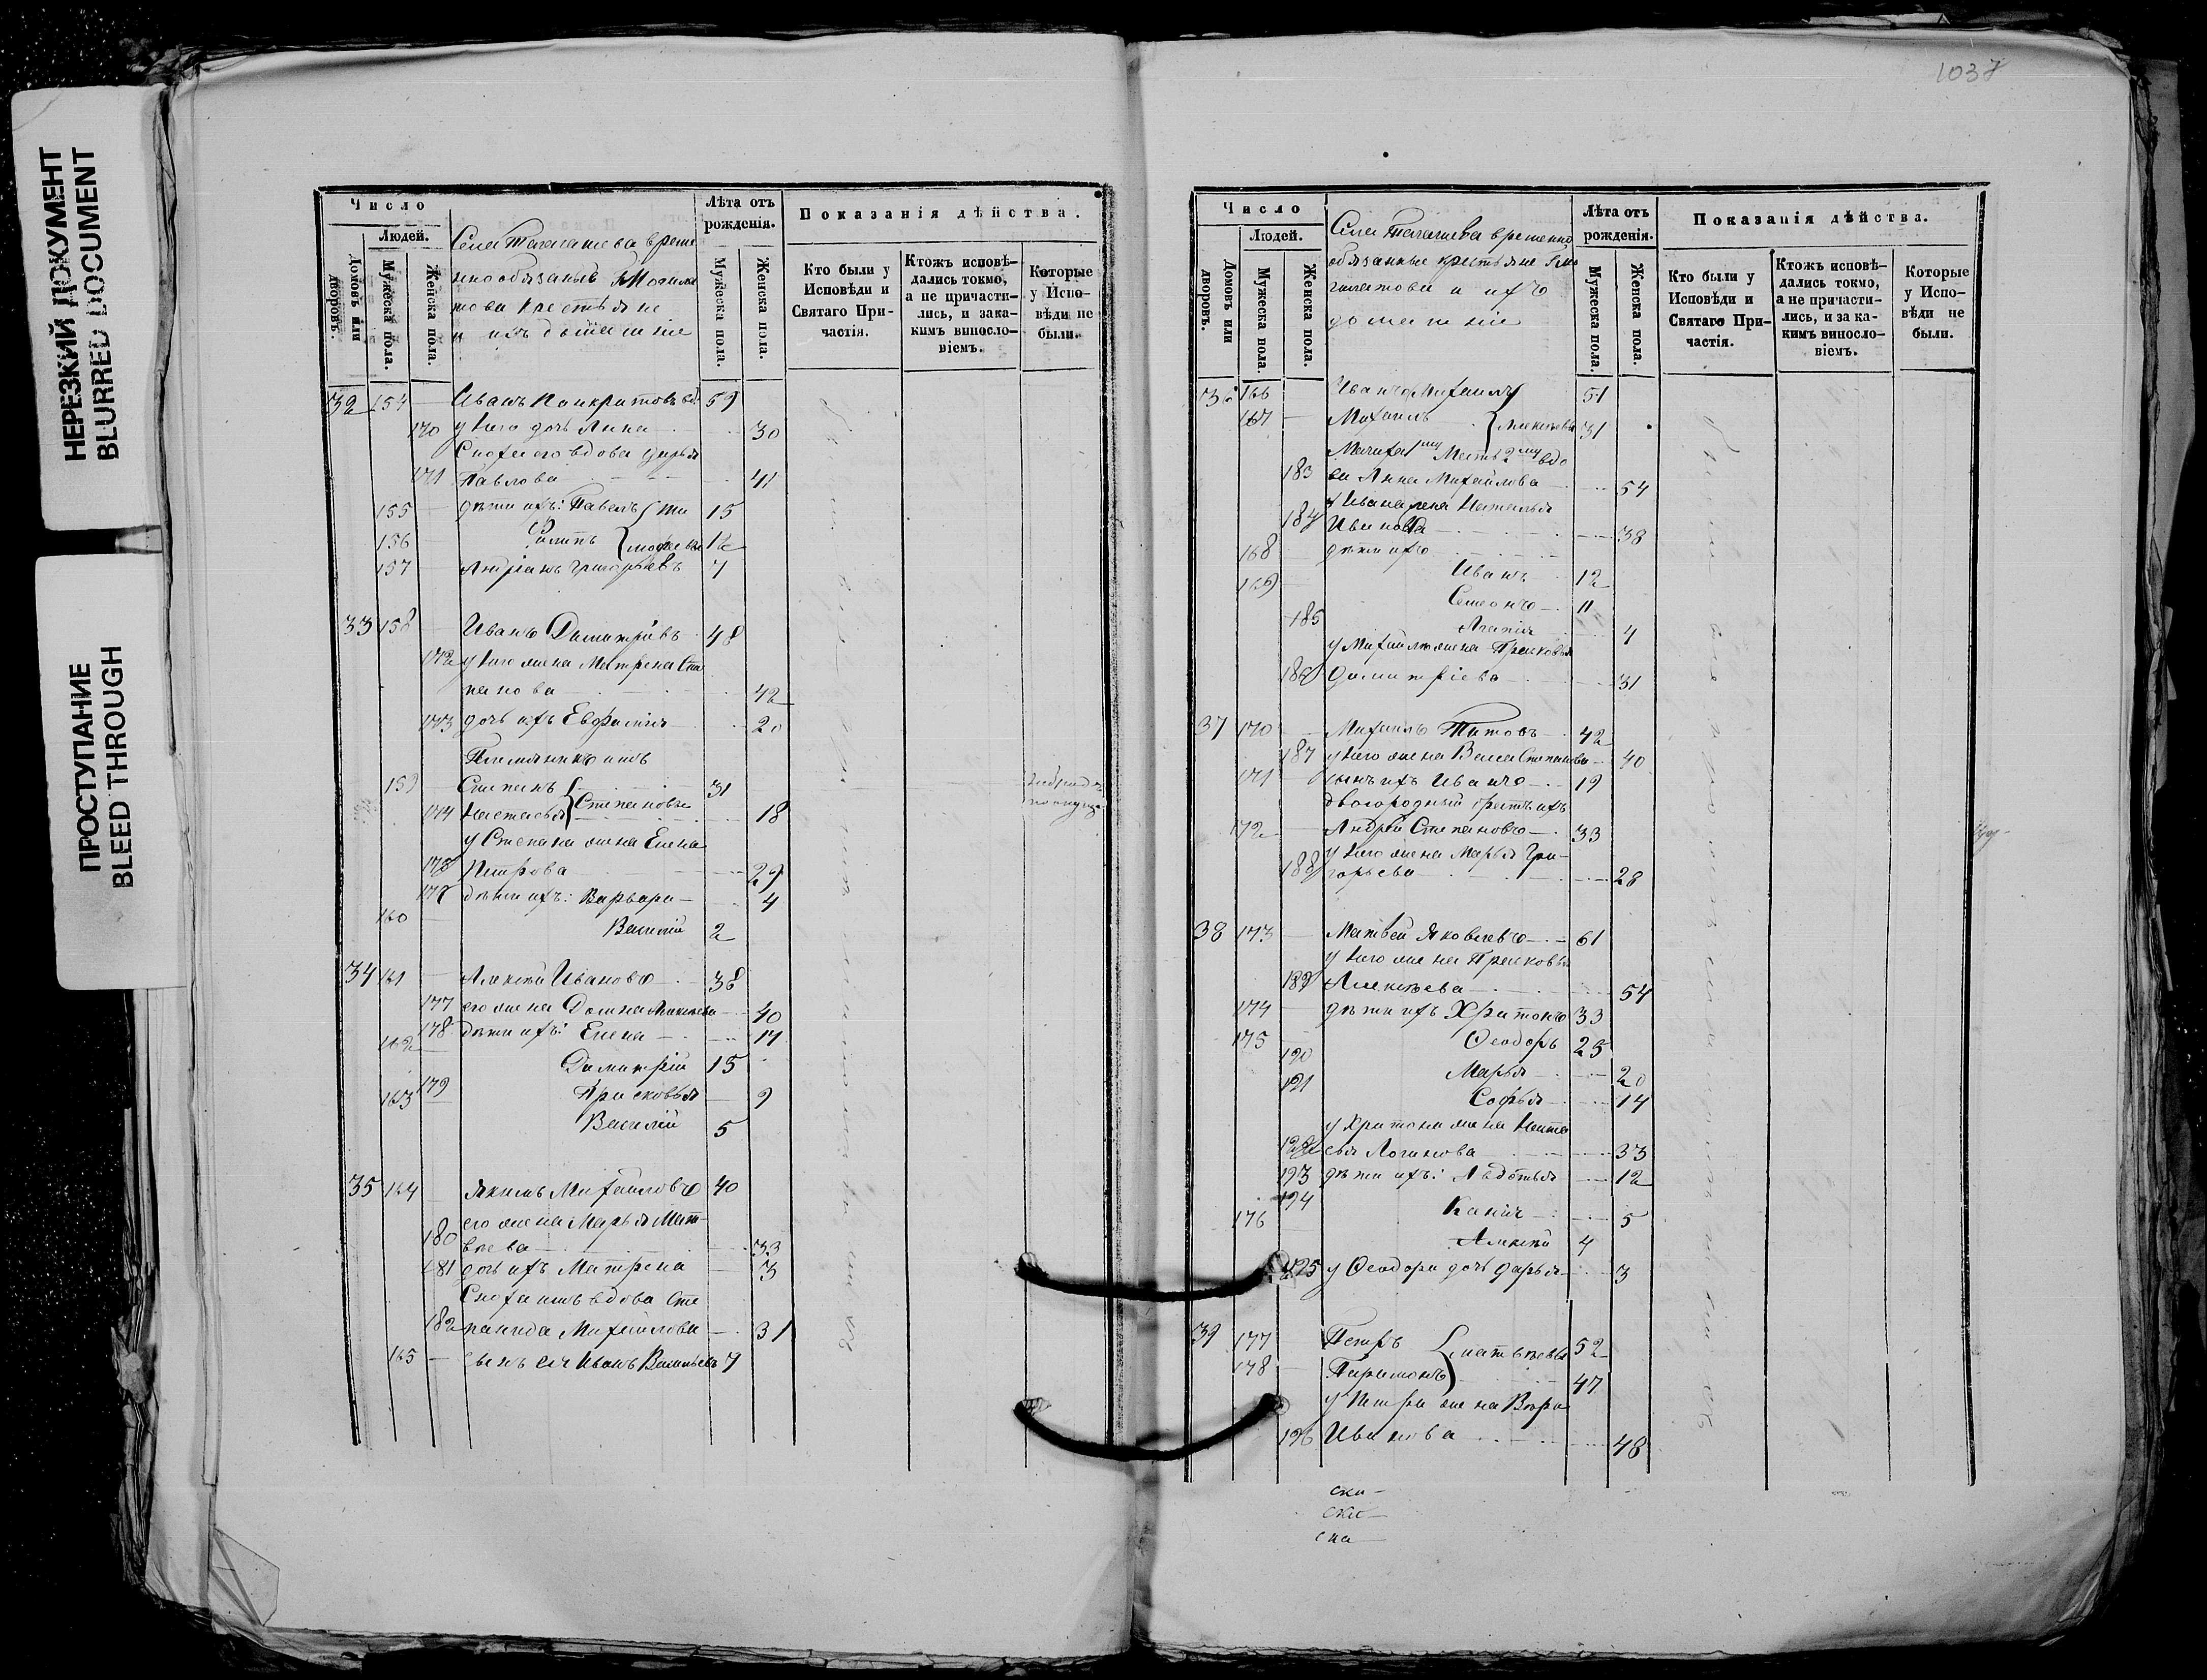 НЕРЕЗКИЙ ДОКУМЕНТ
BLURRED DOCUMENT
ПРОСТУПАНИЕ
BLEED THROUGH
Число
Людей.
Домовъ или дворовъ.
Мужеска пола.
Женска пола.
Села временно
обязаные
крестьяне
и ихъ домашніе
Лѣта отъ рожденія.
Мужеска пола.
Женска пола.
Показанія дѣйства.
Кто были у Исповѣди и Святаго Причастія.
Ктожъ исповѣдались токмо, а не причастились, и за какимъ винословіемъ.
Которые у Исповѣди не были.
32 154 Иванъ Панкратовъ вд. 59
170 у него дочь Анна 30
Сноха его вдова Дарья
171 Павлова 41
155 дѣти ихъ: Павелъ 15
156 Филипъ 12
157 Андріанъ Григорьевъ 7
33 158 Иванъ Димитріевъ 48
172 у него жена Матрена Сте
панова 42
173 дочь ихъ Евфимія 20
Племянники ихъ
159 Степанъ 31
174 Настасья Степановы 18
у Степана жена Елена
175 Петрова 29
176 дѣти ихъ: Варвара 4
160 Василій 2
34 161 Алексѣй Ивановъ 38
177 его жена Домна Алексѣева 40
178 дѣти ихъ: Елена 17
162 Димитрій 15
179 Прасковья 9
163 Василій 5
35 164 Якимъ Михайловъ 40
его жена Марья Мат
180 вѣева 33
181 дочь ихъ Матрена 3
Сноха ихъ вдова Сте
182 панида Михайлова 31
165 сынъ ея Иванъ Васильевъ 7
1037
Число
Людей.
Домовъ или дворовъ.
Мужеска пола.
Женска пола.
Села временно
обязанные крестьяне
и ихъ
домашніе
Лѣта отъ рожденія.
Мужеска пола.
Женска пола.
Показанія дѣйства.
Кто были у Исповѣди и Святаго Причастія.
Ктожъ исповѣдались токмо, а не причастились, и за какимъ винословіемъ.
Которые у Исповѣди не были.
36 166 Иванъ 51
167 Михаилъ Алексѣевы 31
Мачиха 1му Мать 2му вдо
183 ва Анна Михайлова 54
у Ивана жена Наталья
184 Иванова 38
168 дѣти ихъ
Иванъ 12
169 Семенъ 11
185 Агапія 4
у Михайлы жена Прасковья
186 Димитріева 31
37 170 Михаилъ Титовъ 42
187 у него жена Васса Степанова 40
171 сынъ ихъ Иванъ 19
двоюродный братъ ихъ
172 Андрей Степановъ 33
у него жена Марья Гри
188 горьева 28
38 173 Матвей Яковлевъ 61
у него жена Прасковья
189 Алексѣева 54
174 дѣти ихъ Харитонъ 33
175 Ѳеодоръ 25
190 Марья 20
191 Софья 14
у Харитона жена Наста
192 сья Логинова 33
193 дѣти ихъ: Авдотья 12
194 Ксенія 5
176 Алексѣй 4
195 у Ѳеодора дочь Дарья 3
39 177 Петръ Матвѣевы 52
178 Парамонъ 47
у Петра жена Вѣра
196 Иванова 48